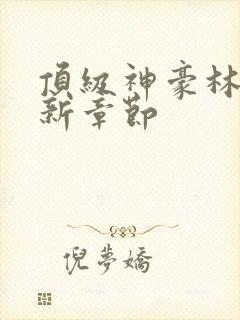 頂級神豪林
新章節
倪夢嬌